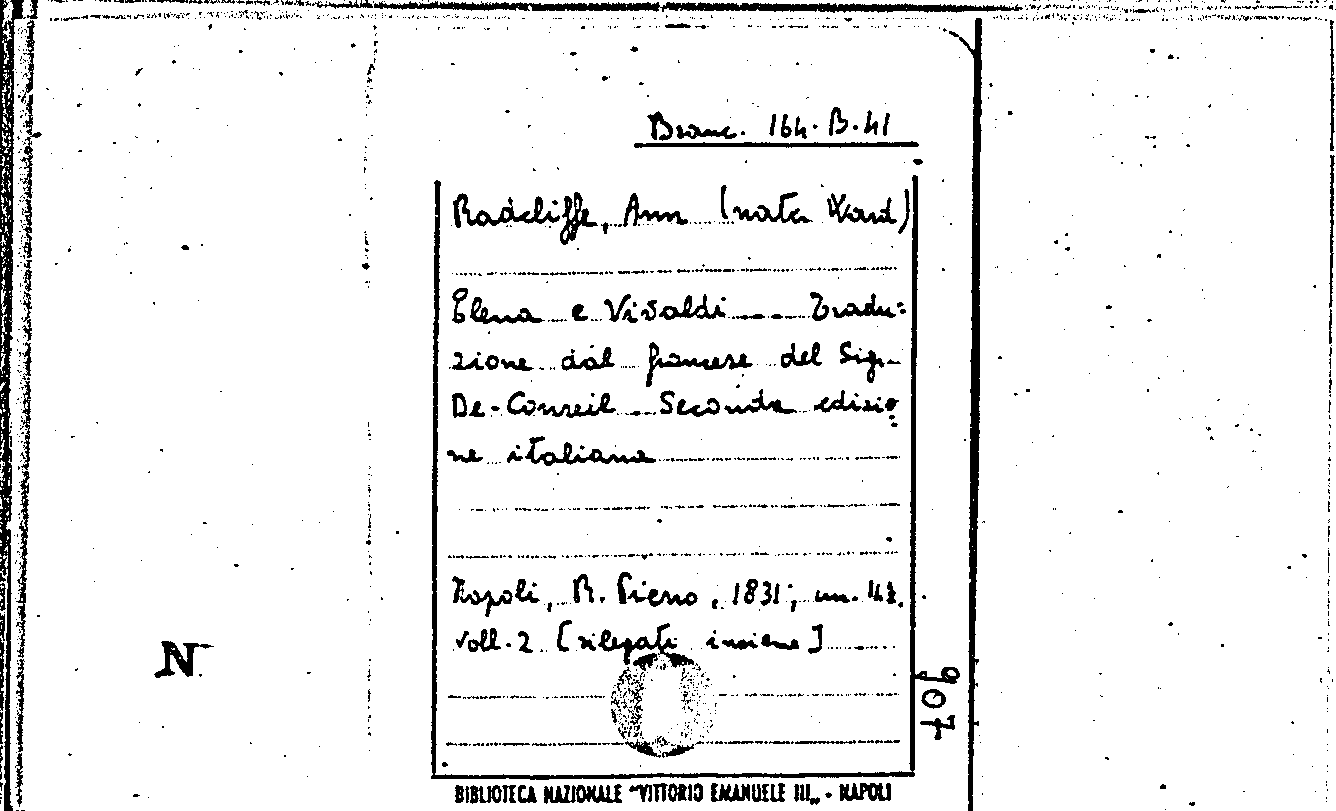 Branc. 164. B. 41
Radcliffe, Ann (nata Ward)
Elena e Vivaldi ... Tradu=
zione dal francese del Sign.
De-Conseil. Seconda edizio
ne italiana
Napoli, R. Pierro, 1831; in
voll. 2 [rilegati insieme]
907
N
BIBLIOTECA NAZIONALE "VITTORIO EMANUELE III" - NAPOLI